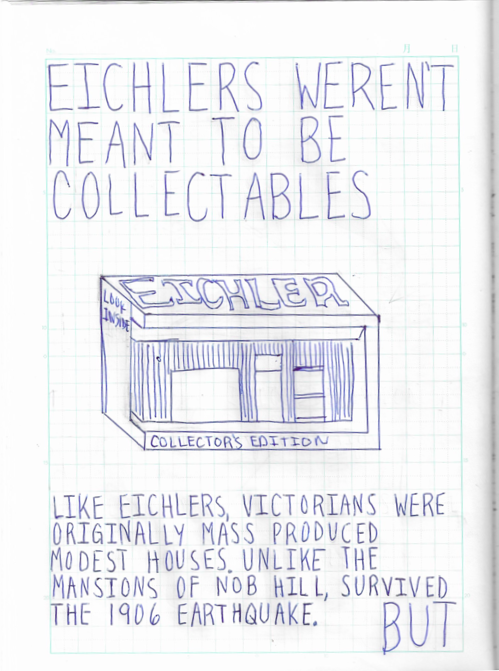 月 日
EICHLERS WEREN'T
MEANT TO BE
COLLECTABLES
EICHLER
LOOK
INSIDE
COLLECTOR'S EDITION
LIKE EICHLERS, VICTORIANS WERE
ORIGINALLY MASS PRODUCED
MODEST HOUSES. UNLIKE THE
MANSIONS OF NOB HILL, SURVIVED
THE 1906 EARTHQUAKE.
BUT